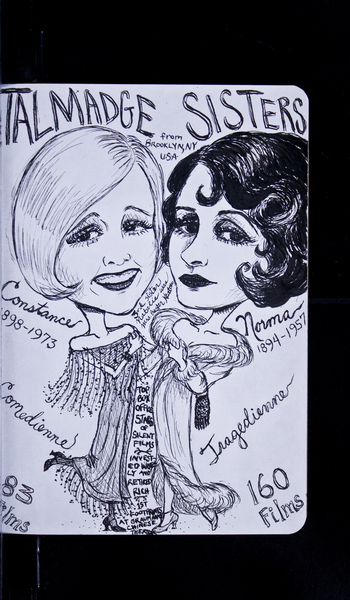 TALMADGE SISTERS
from
BROOKLYN, NY
USA
Constance
1898-1973
Norma
1894-1957
Comedienne
Tragedienne
TOP
BOX
OFFICE
STARS
OF
SILENT
FILMS
INVEST
ED WISE
LY AND
RETIRED
RICH
1ST
FOOTPRINTS
AT GRAUMAN'S
CHINESE
THEATER
83
Films
160
Films